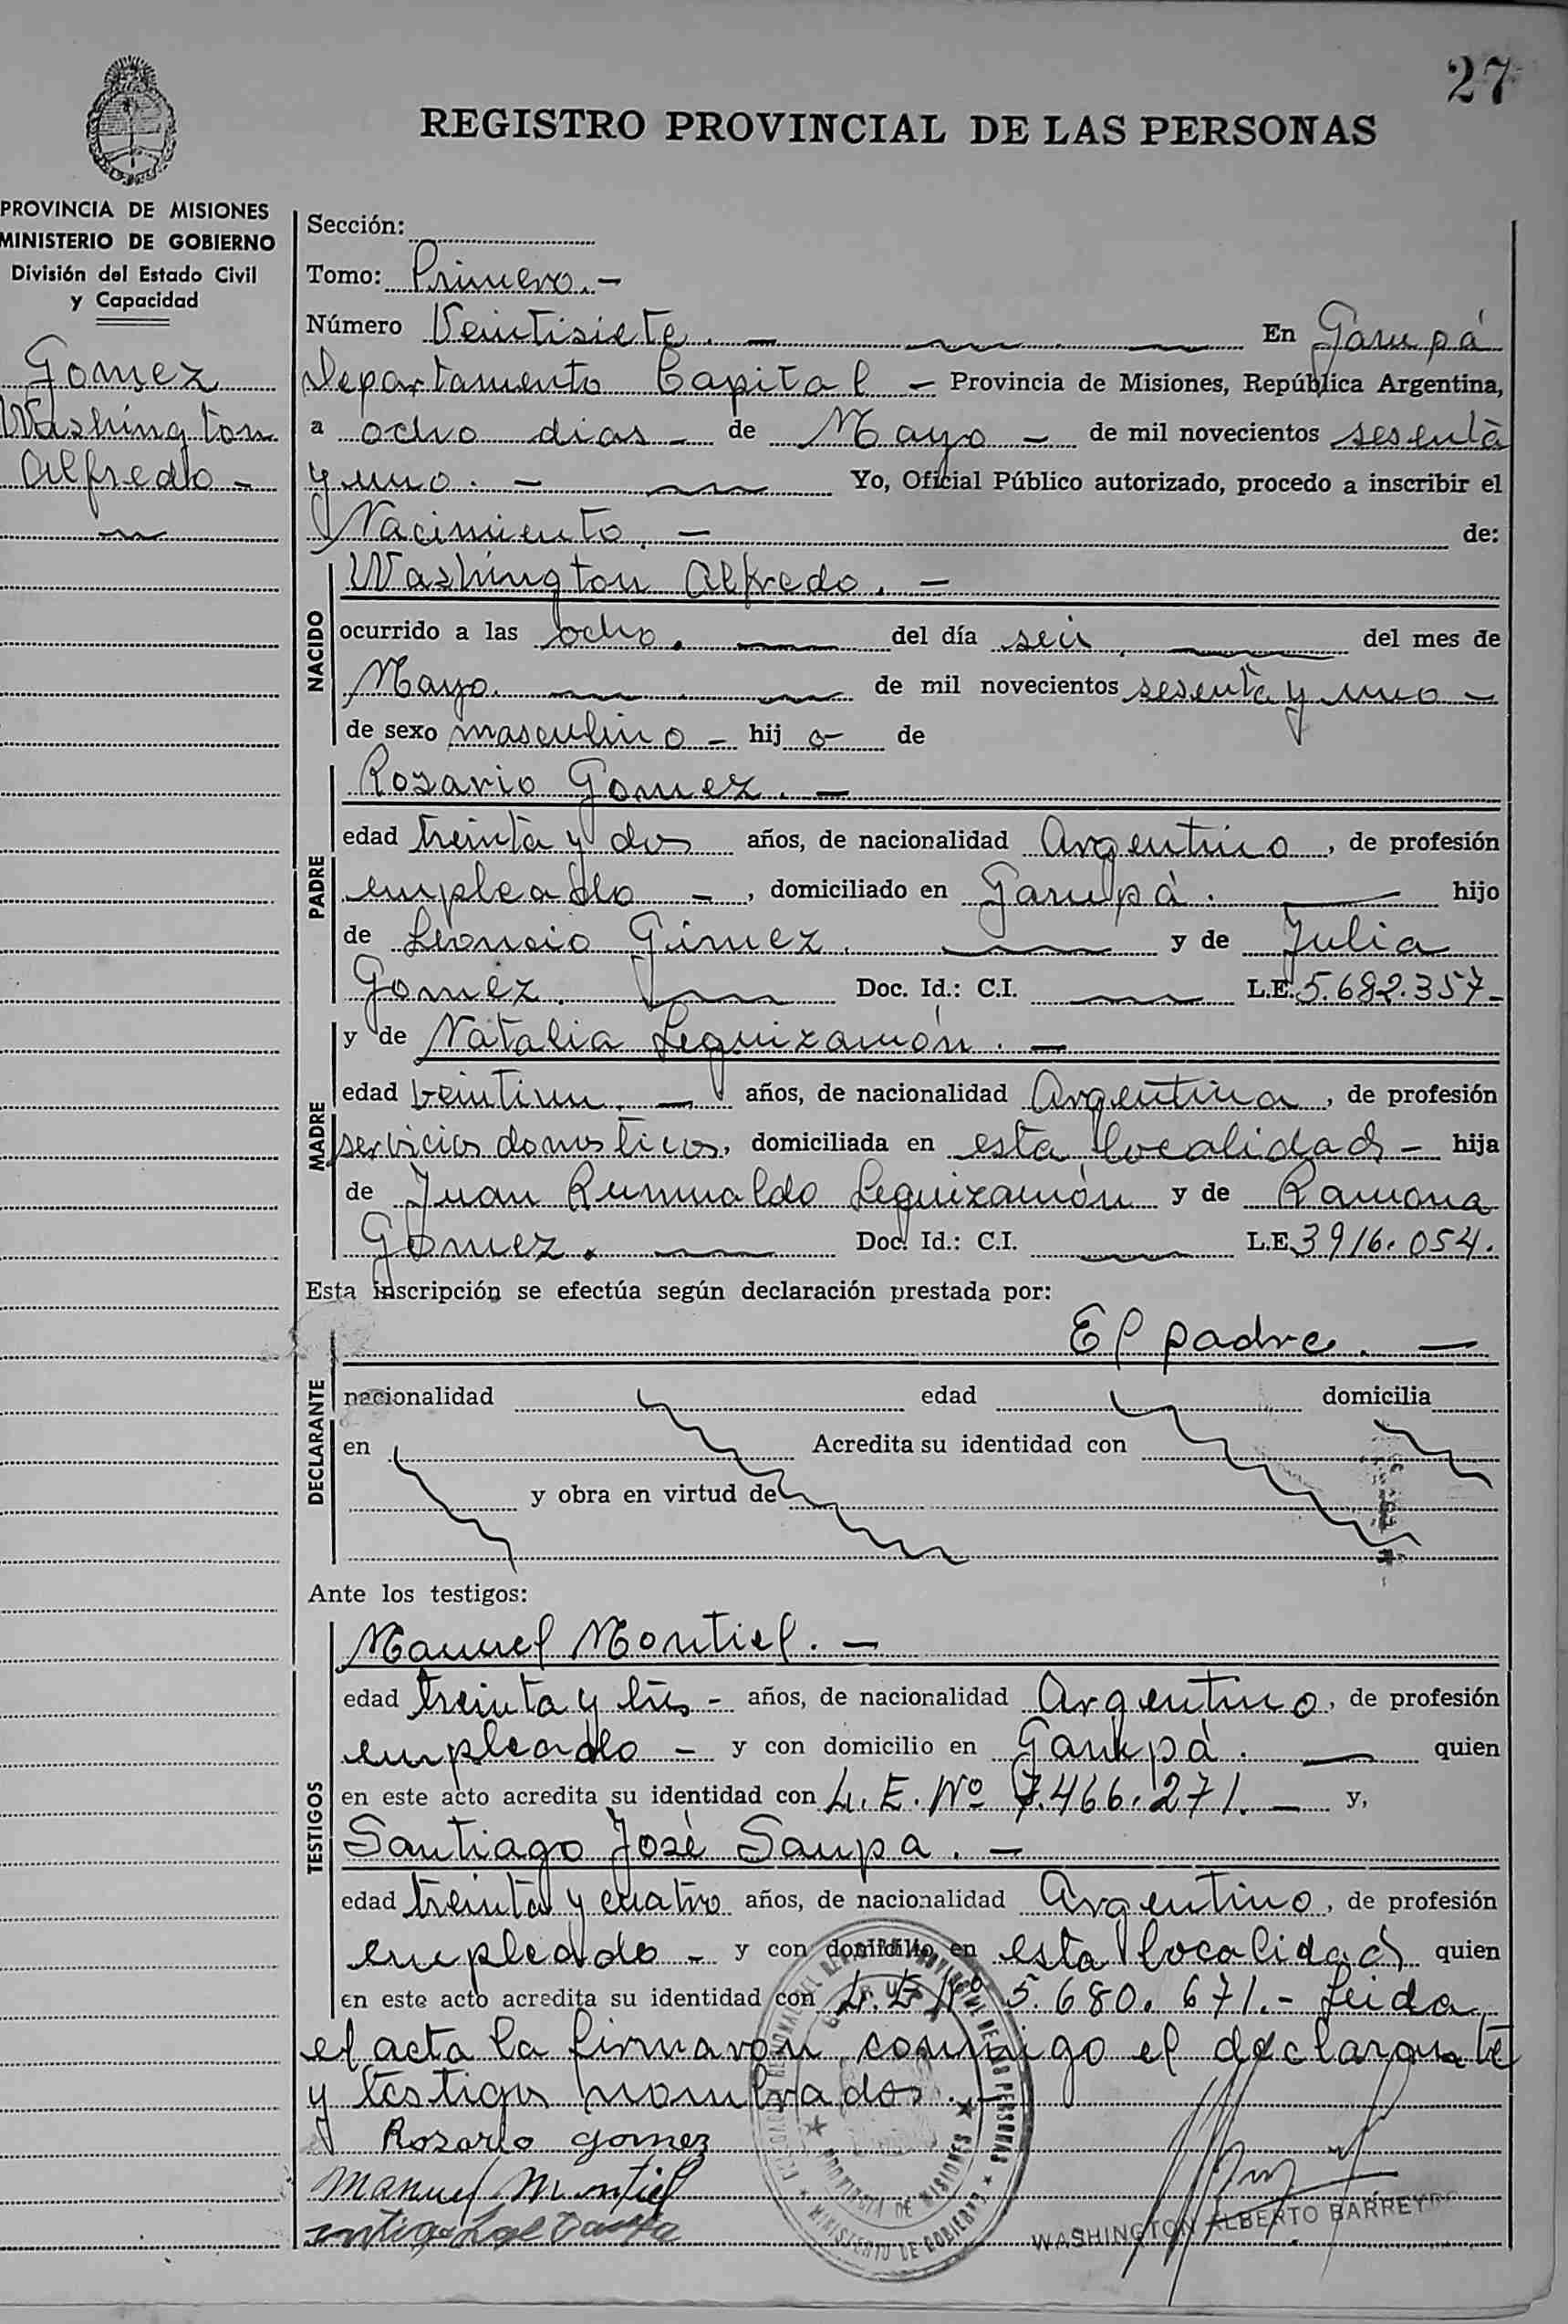 27
REGISTRO PROVINCIAL DE LAS PERSONAS
PROVINCIA DE MISIONES
MINISTERIO DE GOBIERNO
División del Estado Civil
y Capacidad
Gomez
Washington
Alfredo -
Sección:
Tomo: Primero. -
Número Veintisiete. - En Garupá
Departamento Capital - Provincia de Misiones, República Argentina,
a ocho dias - de Mayo - de mil novecientos sesenta
y uno. - Yo, Oficial Público autorizado, procedo a inscribir el
Nacimiento. - de:
NACIDO
Washington Alfredo. -
ocurrido a las ocho. del día seis del mes de
Mayo. de mil novecientos sesenta y uno -
de sexo masculino - hij o- de
PADRE
Rosario Gomez. -
edad treinta y dos años, de nacionalidad Argentino, de profesión
empleado -, domiciliado en Garupá. hijo
de Leoncio Gimez. y de Julia
Gomez. Doc. Id.: C.I. L.E. 5.682.357-
MADRE
y de Natalia Leguizamón. -
edad veintiun. - años, de nacionalidad Argentina, de profesión
servicios domesticos, domiciliada en esta localidad - hija
de Juan Rumualdo Leguizamón y de Ramona
Gomez. Doc. Id.: C.I. L.E. 3916.054.
Esta inscripción se efectúa según declaración prestada por:
DECLARANTE
El padre. -
nacionalidad edad domicilia
en Acredita su identidad con
y obra en virtud de
Ante los testigos:
TESTIGOS
Manuel Montiel. -
edad treinta y tres - años, de nacionalidad Argentino, de profesión
empleado - y con domicilio en Garupá. quien
en este acto acredita su identidad con L. E. Nº 7.466.271. - y,
Santiago José Saupa. -
edad treinta y cuatro años, de nacionalidad Argentino, de profesión
empleado - y con domicilio en esta localidad quien
en este acto acredita su identidad con L. E Nº 5.680.671.- Leida
el acta la firmaron conmigo el declarante
y testigos nombrados. -
Rosario gomez
Manuel Montiel
WASHINGTON ALBERTO BARREYRO
PROVINCIA DE MISIONES
MINISTERIO DE GOBIERNO